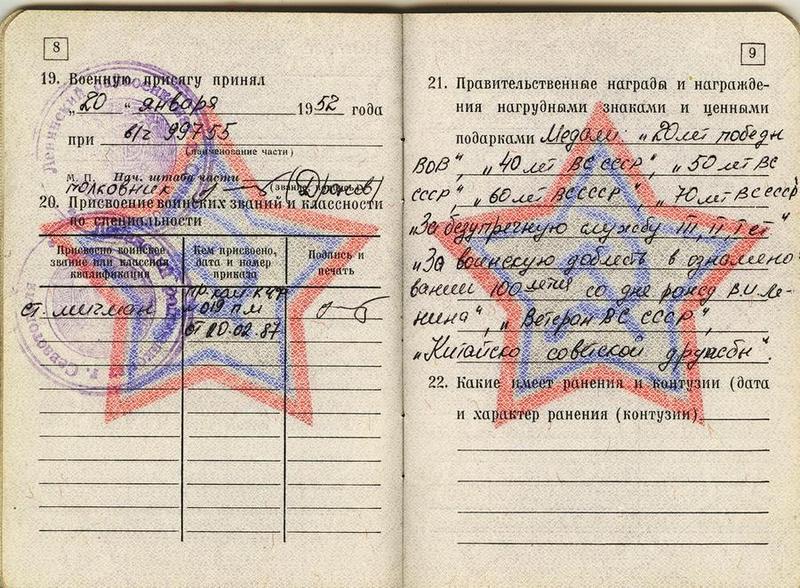 8
19. Военную присягу принял
„20 “ января 1952 года
при в/ч 99755
(наименование части)
М. П. Нач. штаба части
полковник (Дронов)
20. Присвоение воинских званий и классности
по специальности
Присвоено воинское звание или классная квалификация
Кем присвоено, дата и номер приказа
Подпись и печать
ст. мичман
№ 019 пм
от 20.02.87
9
21. Правительственные награды и награжде-
ния нагрудными знаками и ценными
подарками Медали: „20 лет победы
ВОВ“, „40 лет ВС СССР“, „50 лет ВС
СССР“, „60 лет ВС СССР“, „70 лет ВС СССР
„За безупречную службу III, II, I ст“
„За воинскую доблесть в ознамено
вании 100 летия со дня рожд В.И. Ле-
нина“, „Ветеран ВС СССР“,
„Китайско советской дружбы“.
22. Какие имеет ранения и контузии (дата
и характер ранения (контузии)